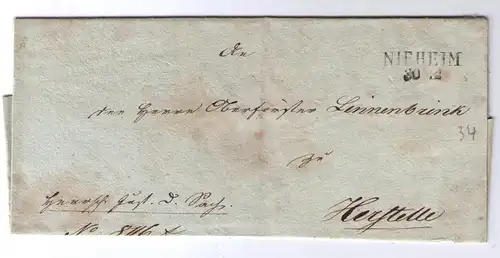 An
NIEHEIM
30 12
den Herrn Oberförster Linnenbrink
34
zu
Herrsch. Gust. d. Sach.
Herstelle
No 846